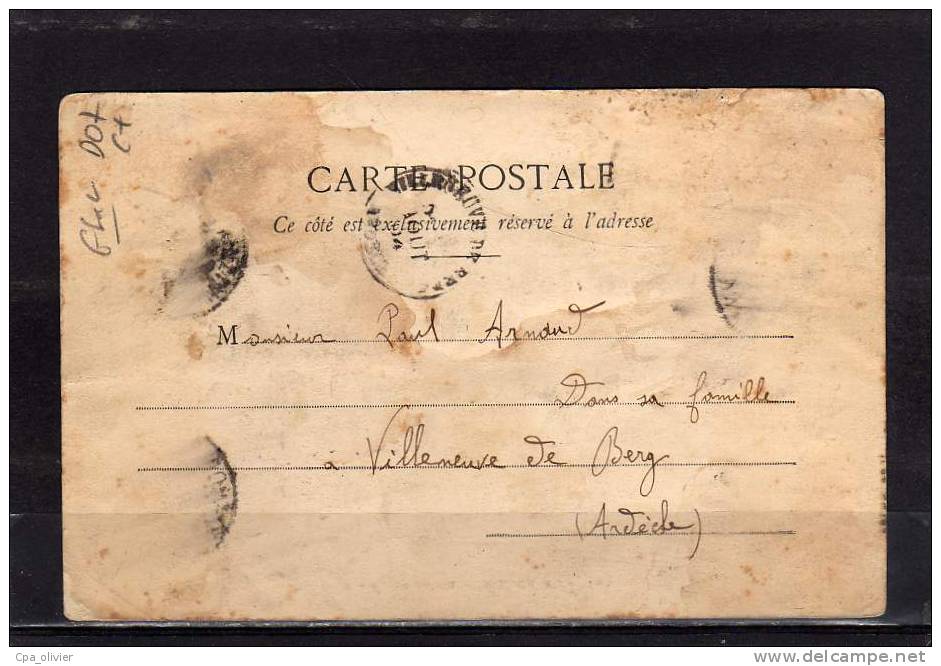 CARTE POSTALE
Ce côté est exclusivement réservé à l'adresse
AOUT
04
Monsieur Paul Arnaud
Dans sa famille
à Villeneuve de Berg
(Ardèche)
Cpa_olivier
delcampe.net